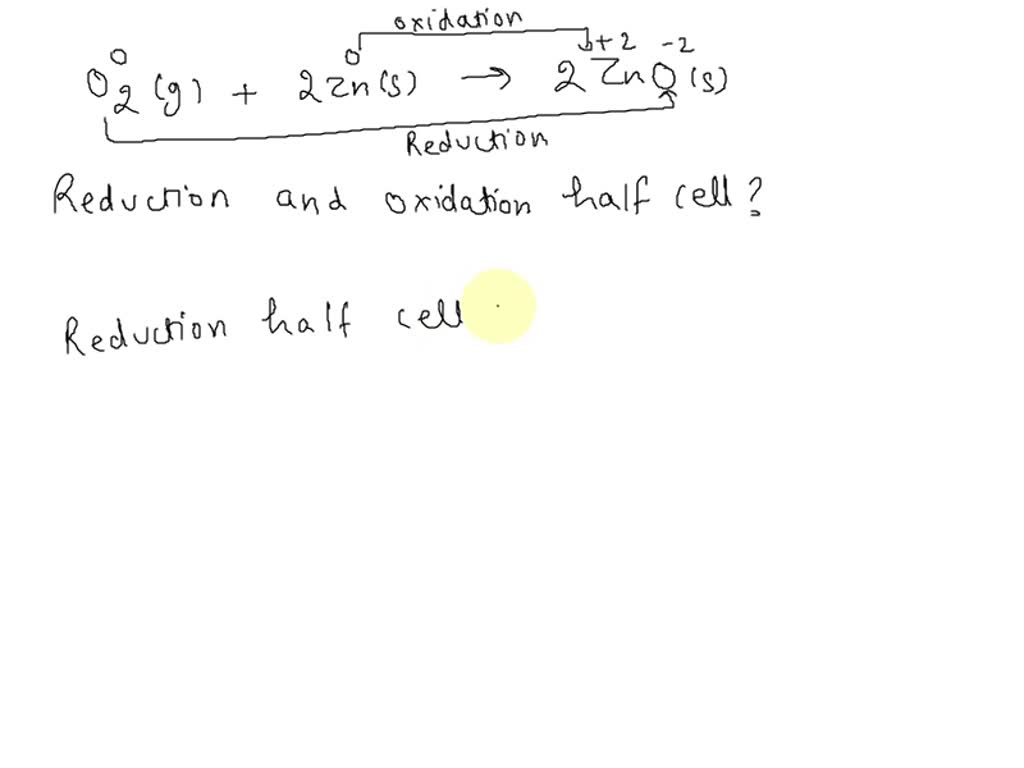 oxidation
0 0 +2 -2
O2 (g) + 2 Zn (s) → 2 ZnO (s)
Reduction
Reduction and oxidation half cell?
Reduction half cell